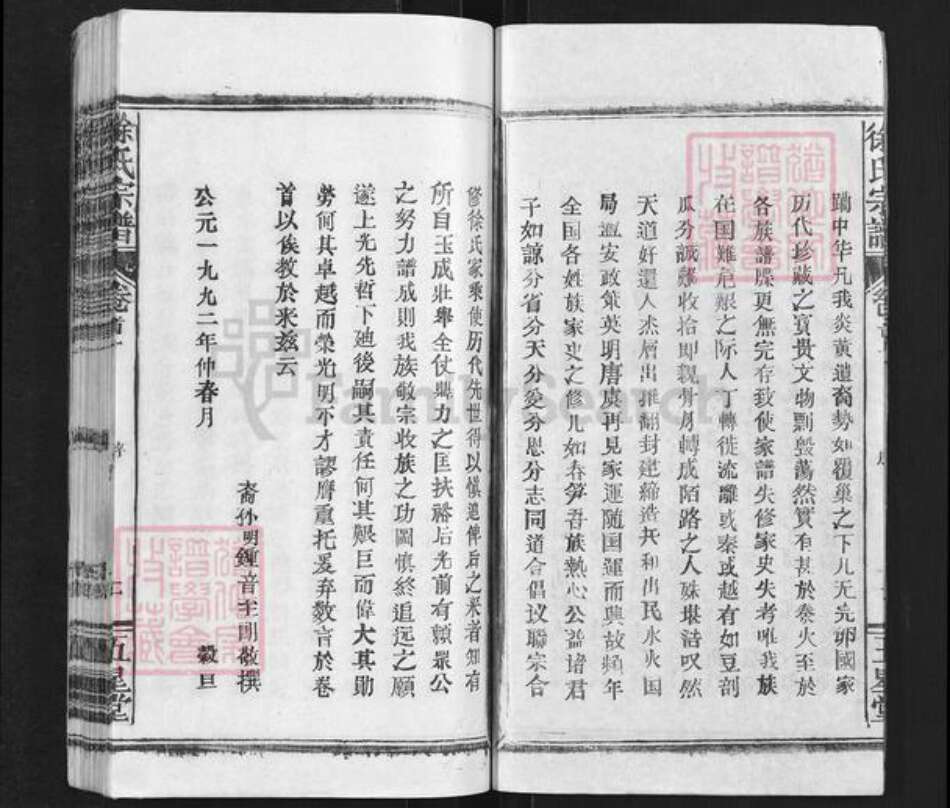 徐氏宗譜
卷首
五星堂
蹦中华凡我炎黄遺裔勢如覆巢之下几无完卵國家
历代珍藏之寶貴文物剽毁蕩然實有甚於秦火至於
各族譜牒更無完存致使家譜失修家史失考唯我族
在国難危艱之际人丁轉徙流離或秦或越有如豆剖
瓜分誠難收拾即親骨肉轉成陌路之人殊堪浩叹然
天道好還人杰層出推翻封建締造共和出民水火国
局濫安政策英明唐虞再見家運随国運而興故頻年
全国各姓族家史之修几如春笋吾族熱心公益诸君
子如諒分省分天分愛分恩分志同道合倡议聯宗合
修徐氏家乘使历代先世得以慎追俾后之来者知有
所自玉成壮舉全仗舉力之匡扶裕后光前有賴眾公
之努力譜成則我族敬宗收族之功圖慎終追远之願
遂上光先哲下廸後嗣其責任何其艰巨而偉大其勛
勞何其卓越而荣光明不才謬膺重托爰弁数言於卷
首以俟教於来兹云
公元一九九二年仲春月
穀旦
裔孙明鍾音主剛敬撰
徐氏宗譜
卷首
序
二
五星堂
FamilySearch